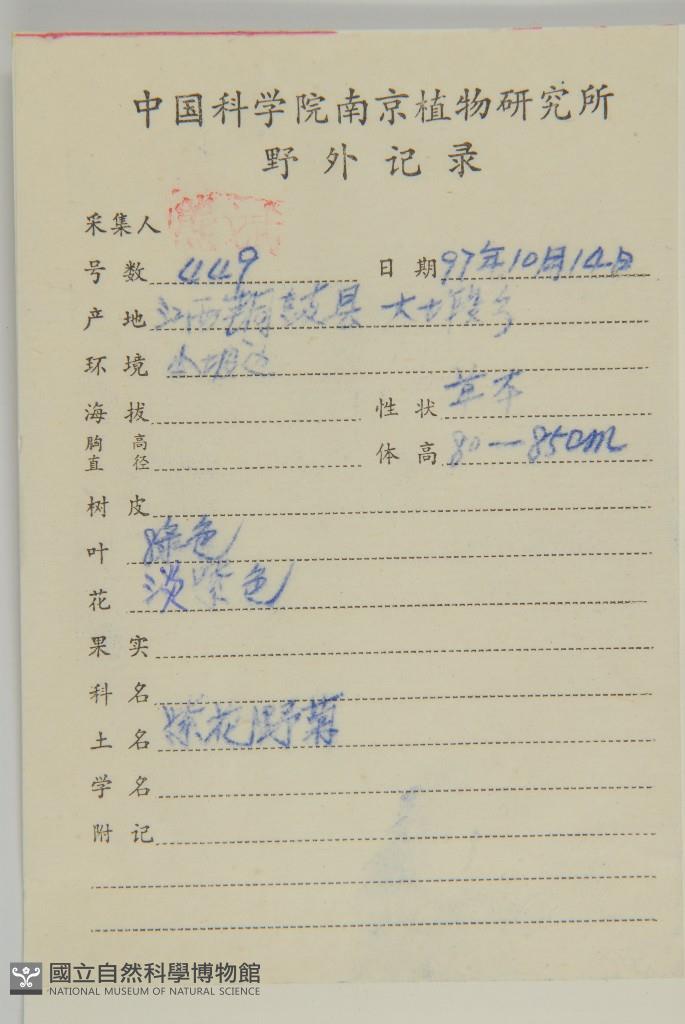 中国科学院南京植物研究所
野外记录
采集人
号数 449 日期 97年10月14日
产地 江西铜鼓县 大塅乡
环境
海拔 性状 草本
胸高直径 体高 80—85cm
树皮
叶 绿色
花 淡紫色
果实
科名
土名 紫花野菊
学名
附记
國立自然科學博物館
NATIONAL MUSEUM OF NATURAL SCIENCE